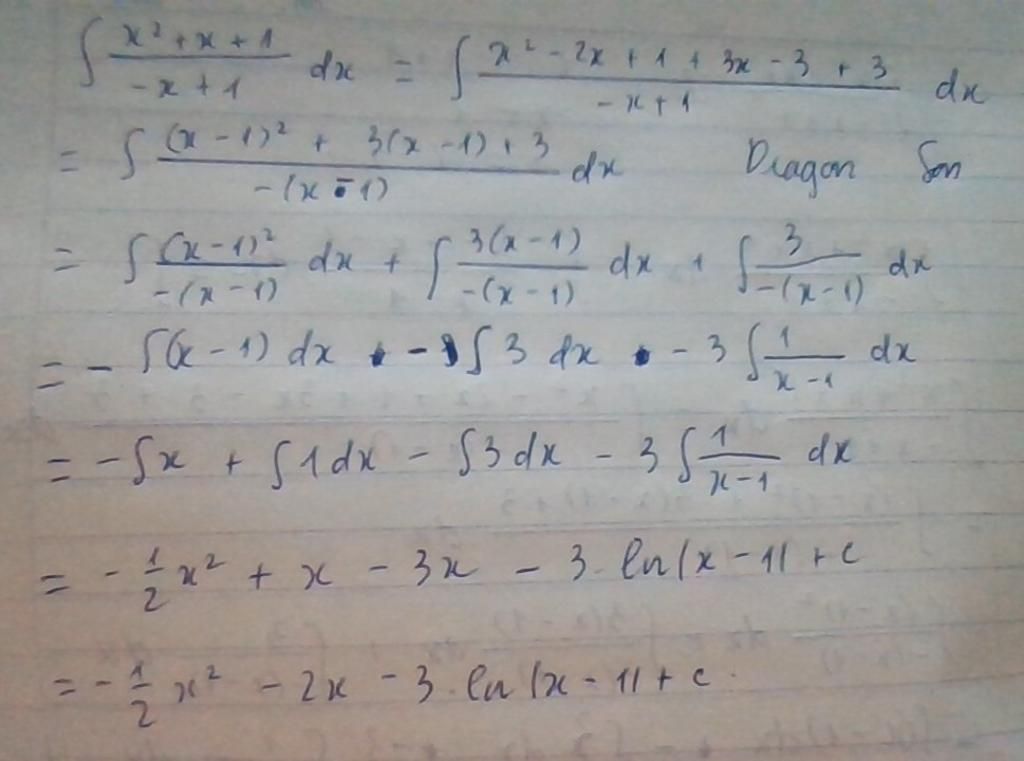 ∫ (x² + x + 1)/(-x + 1) dx = ∫ (x² - 2x + 1 + 3x - 3 + 3)/(-x + 1) dx
= ∫ ((x - 1)² + 3(x - 1) + 3)/(-(x - 1)) dx Dragon Son
= ∫ (x - 1)²/(-(x - 1)) dx + ∫ 3(x - 1)/(-(x - 1)) dx + ∫ 3/(-(x - 1)) dx
= - ∫(x - 1) dx - ∫ 3 dx - 3 ∫ 1/(x - 1) dx
= - ∫x + ∫ 1 dx - ∫ 3 dx - 3 ∫ 1/(x - 1) dx
= - 1/2 x² + x - 3x - 3. ln|x - 1| + c
= - 1/2 x² - 2x - 3. ln|x - 1| + c.